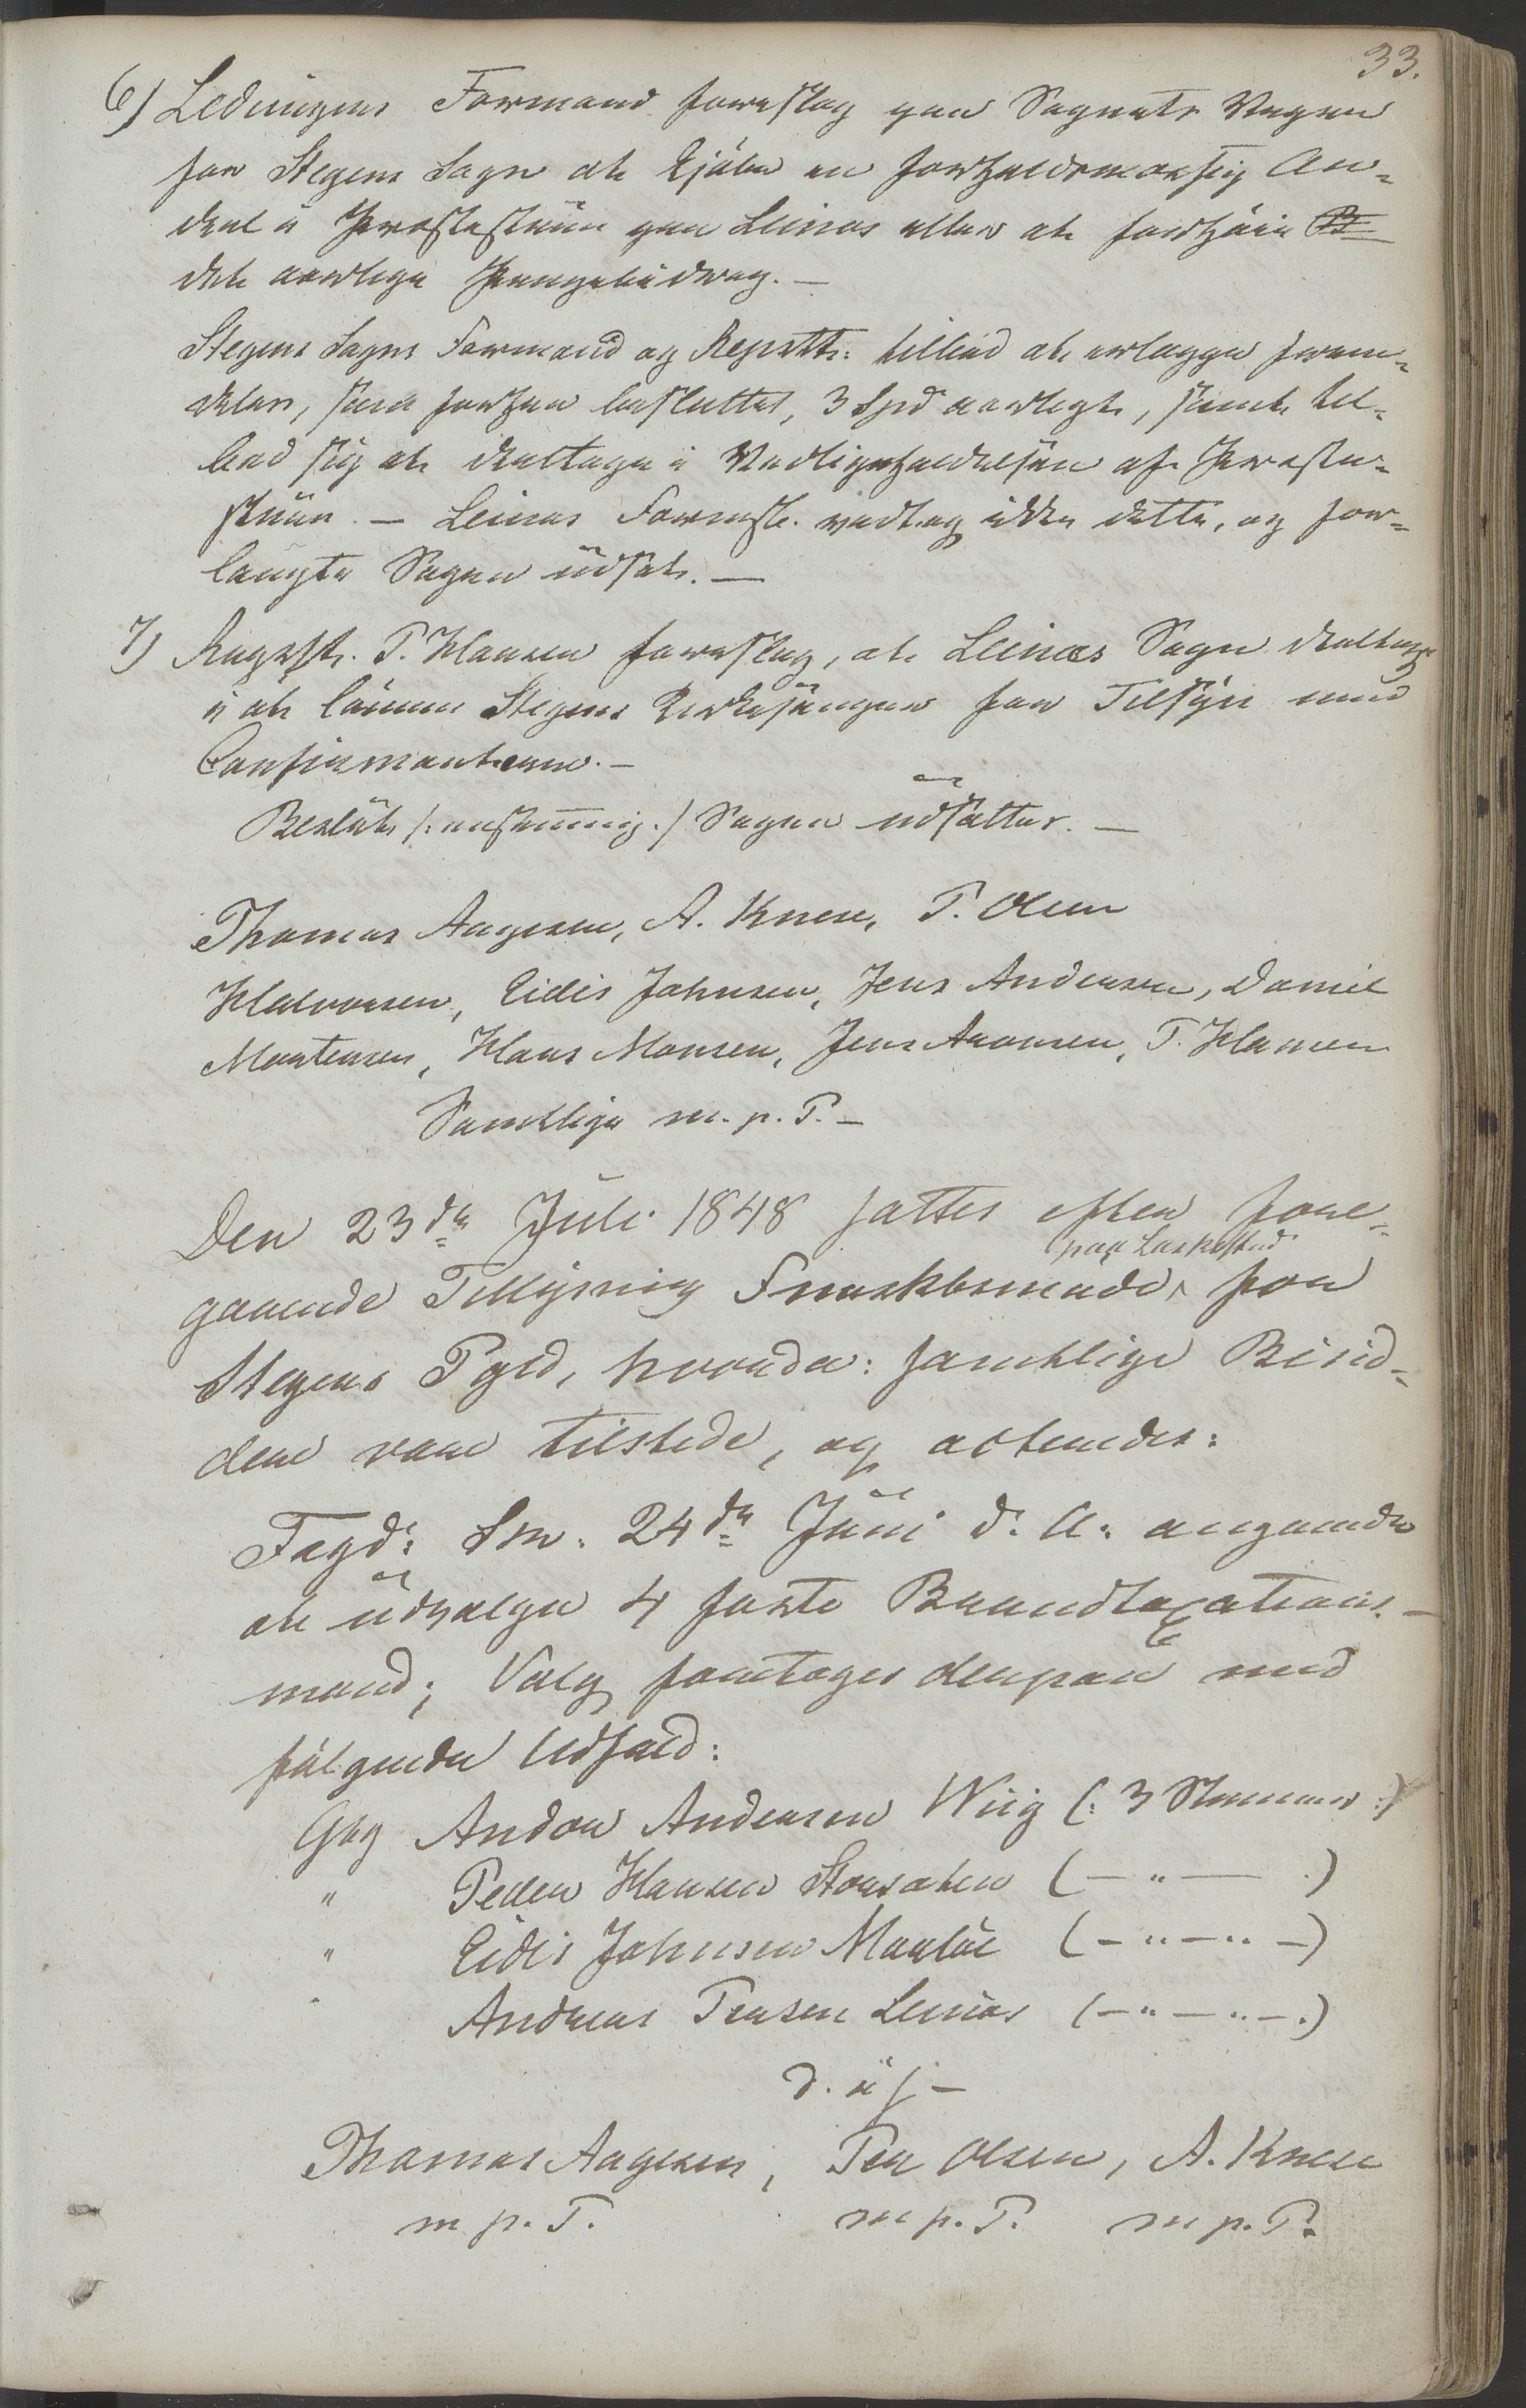 33.
6) Ledingens Formand foreslog paa Sognets Vegne
for Stegens Sogn at kjøbe en forholdsmæssig An-
deel i Præstestuen paa Leines eller at forhøie
det aarlige Pengebidrag. —
Stegens Sogns Formand og Repstt: tilbød at erlægge frem-
deles, som forhen besluttet, 3 Spd aarligt, samt til-
bød sig at deeltage i Vedligeholdelsen af Præste-
stuen. — Leines Formsk. vedtog ikke dette, og for-
langte Sagen udsat. —
7) P. Hansen foreslog, at Leines Sogn deeltager
i at lønne Stegens Kirkesanger for Tilsyn med
Confirmanterne. —
Besluts /: eenstemmig :/ Sagen udsættes. —
Thomas Aagesen, A. Knem, P. Olsen
Halvorsen, Eidis Johnsen, Jens Andersen, Daniel
Mortensen, Hans Monsen, Jens Aronsen, P. Hansen
Samtlige m. p. P. —
Den 23de Juli 1848 sattes efter fore-
paa Laskestad
gaaende Tillysning Formskbsmøde for
Stegens Pgld, hvorda: samtlige Beið-
dere vare tilstede, og
Fogd: Skr. 24de Juni d. A. angaaende
at udvælge 4 faste Brandtaxations-
mænd; Valg foretages derpaa med
følgende Udfald:
Gbg Andor Andersen Wiig (: 3 Stemmer :)
" Peder Hansen Storsæten (— " — .)
" Eidis Johnsen Maaløe (— " — " —)
" Andreas Pensen Leines (— " — " — .)
Thomas Aagesen, Peer Olsen, A. Knem
m p. P. m p. P. m p. P.